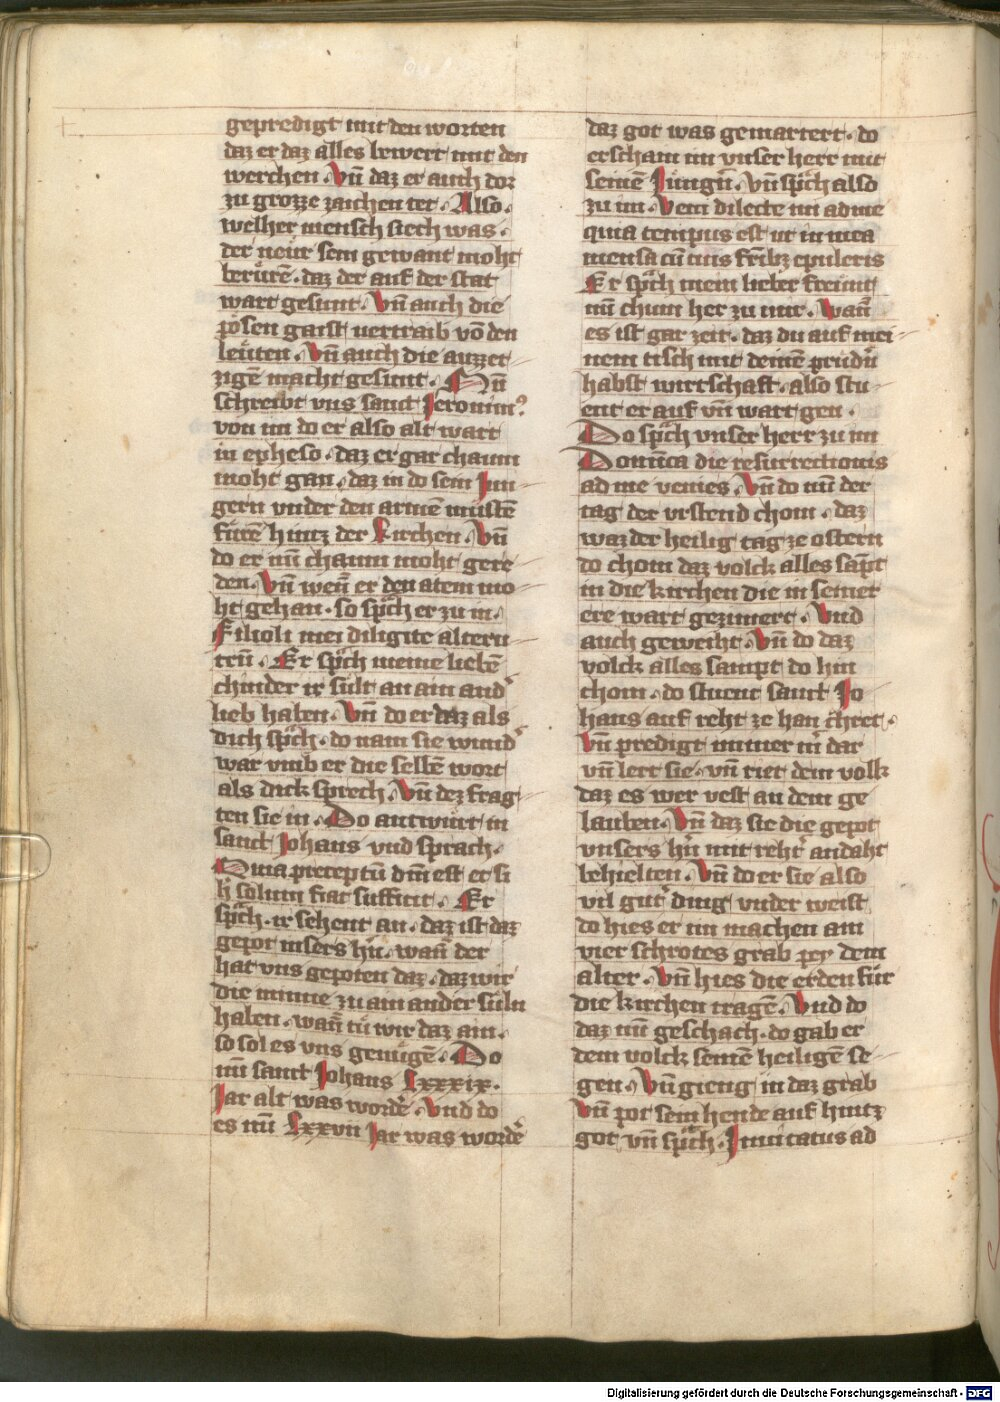 gepredigt mit den worten
daz er daz alles bewert mit den
werchen. Vn̄ daz er auch dor
zu grozze zaichen tet. Also.
welher mensch siech was.
der neur sein gewant moht
berůrē. daz der auf der stat
wart gesunt. Vn̄ auch die
pősen gaist vertraib vō den
leűten. Vn̄ auch die auzzet
zigē macht gesunt. Nū
schreibt vns sanct Jeronim⁹
von im do er also alt wart
in epheso. daz er gar chaum
moht gan. daz in do sein Jun
gern vnder den armē mustē
fürē hintz der Kirchen. Vn̄
do er nū chaum moht gere
den. Vn̄ wen̄ er den atem mo
ht gehan. so sp̄ch er zu in.
Filioli mei diligite alteru
trū. Er sp̄ch meine liebē
chinder ir sült an ain and͛
lieb haben. Vn̄ do er daz als
dich sp̄ch. do nam sie wund͛
war vmb er die selbē wort
als dick sprech. Vn̄ dez frag
ten sie in. Do antwürt in
sanct Johans vnd sprach.
Quia preceptū dn̄i est et si
h̄ solum fiat sufficit. Er
sp̄ch. ir sehent an. daz ist daz
gepot vnsers hn̄. wan̄ der
hat vns gepoten daz. daz wir
die minne zu ain ander süln
haben. wan̄ tů wir daz ain.
so sol es vns genűgē. Do
nū sanct Johans Lxxxix.
Jar alt was wordē. Vnd do
es nū Lxxvii Jar was wordē
daz got was gemartert. do
erschain im vnser herr mit
seinē Jűngn̄. Vn̄ sp̄ch also
zu im. Veni dilecte mi ad me
quia tempus est ut in mea
mensa cū tuis fr̄ibꝫ epuleris
Er sp̄ch mein lieber freűnt
nū chum her zu mir. Wan̄
es ist gar zeit. daz du auf mei
nem tisch mit deinē prüdn̄
habst wirtschaft. also stu
ent er auf vn̄ wart gen.
Do sp̄ch vnser herr zu im
Domīca die resurrectionis
ad me venies. Vn̄ do nū der
tag der vrstend chom. daz
waz der heilig tag ze ostern
do chom daz volck alles sāpt
in die kirchen die in seiner
ere wart gezimert. Vnd
auch geweiht. Vn̄ do daz
volck alles sampt do hin
chom. do stuent sanct Jo
hans auf reht ze han chret.
Vn̄ predigt immer m̄ dar
vn̄ lert sie. vn̄ riet dem volk
daz es wer vest an dem ge
lauben. Vn̄ daz sie die gepot
vnsers hn̄ mit reht͛ andaht
behielten. Vn̄ do er sie also
vil gut͛ ding vnder weist
do hies er im machen ain
vier schrotes grab pey dem
alter. Vn̄ hies die erden für
die kirchen tragē. Vnd do
daz nū geschach. do gab er
dem volck seinē heiligē se
gen. Vn̄ gieng in daz grab
Vn̄ pot sein hende auf hintz
got vn̄ sp̄ch. Inuitatus ad
Digitalisierung gefördert durch die Deutsche Forschungsgemeinschaft - DFG